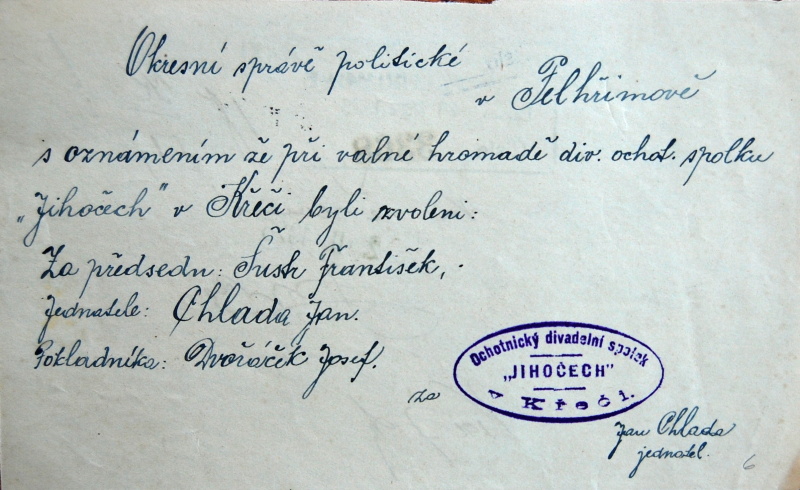 Okresní správě politické
v Pelhřimově
s oznámením že při valné hromadě div. ochot. spolku
„Jihočech" v Křeči byli zvoleni:
Za předsedu: Šustr František,
Jednatele: Chlada Jan.
Pokladníka: Dvořáček Josef.
za
Ochotnický divadelní spolek
„JIHOČECH"
v Křeči.
Jan Chlada
jednatel.
6